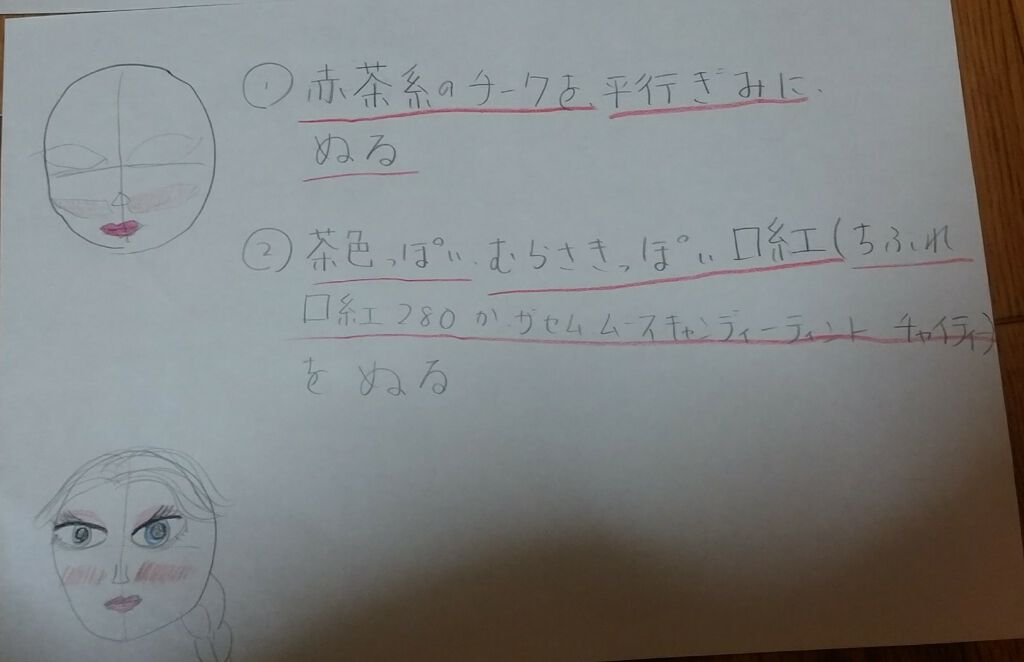 ① 赤茶系のチークを、平行ぎみに、
ぬる
② 茶色っぽい、むらさきっぽい口紅(ちふれ
口紅280か、ザセムムースキャンディーティント チャイティ)
をぬる